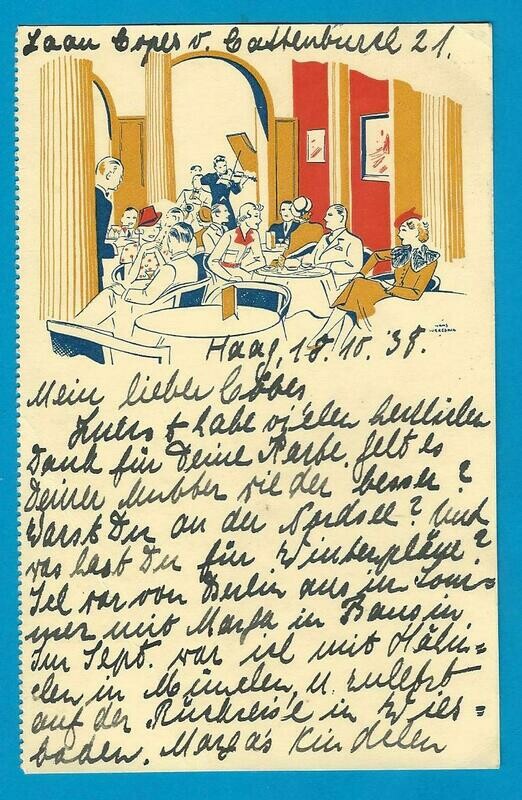 Laan Copes v. Cattenburch 21.
HANS
Haag, 18. 10. 38.
Mein lieber
Zuerst habe vielen herzlichen
Dank für Deine Karte. Geht es
Deiner Mutter wieder besser?
Warst Du an der Nordsee? Und
was hast Du für Winterpläne?
Ich war von Berlin aus im Som=
mer mit Marga in Bansin
Im Sept. war ich mit Häns=
chen in München u. zuletzt
auf der Rückreise in Wies=
baden. Marga's Kindchen